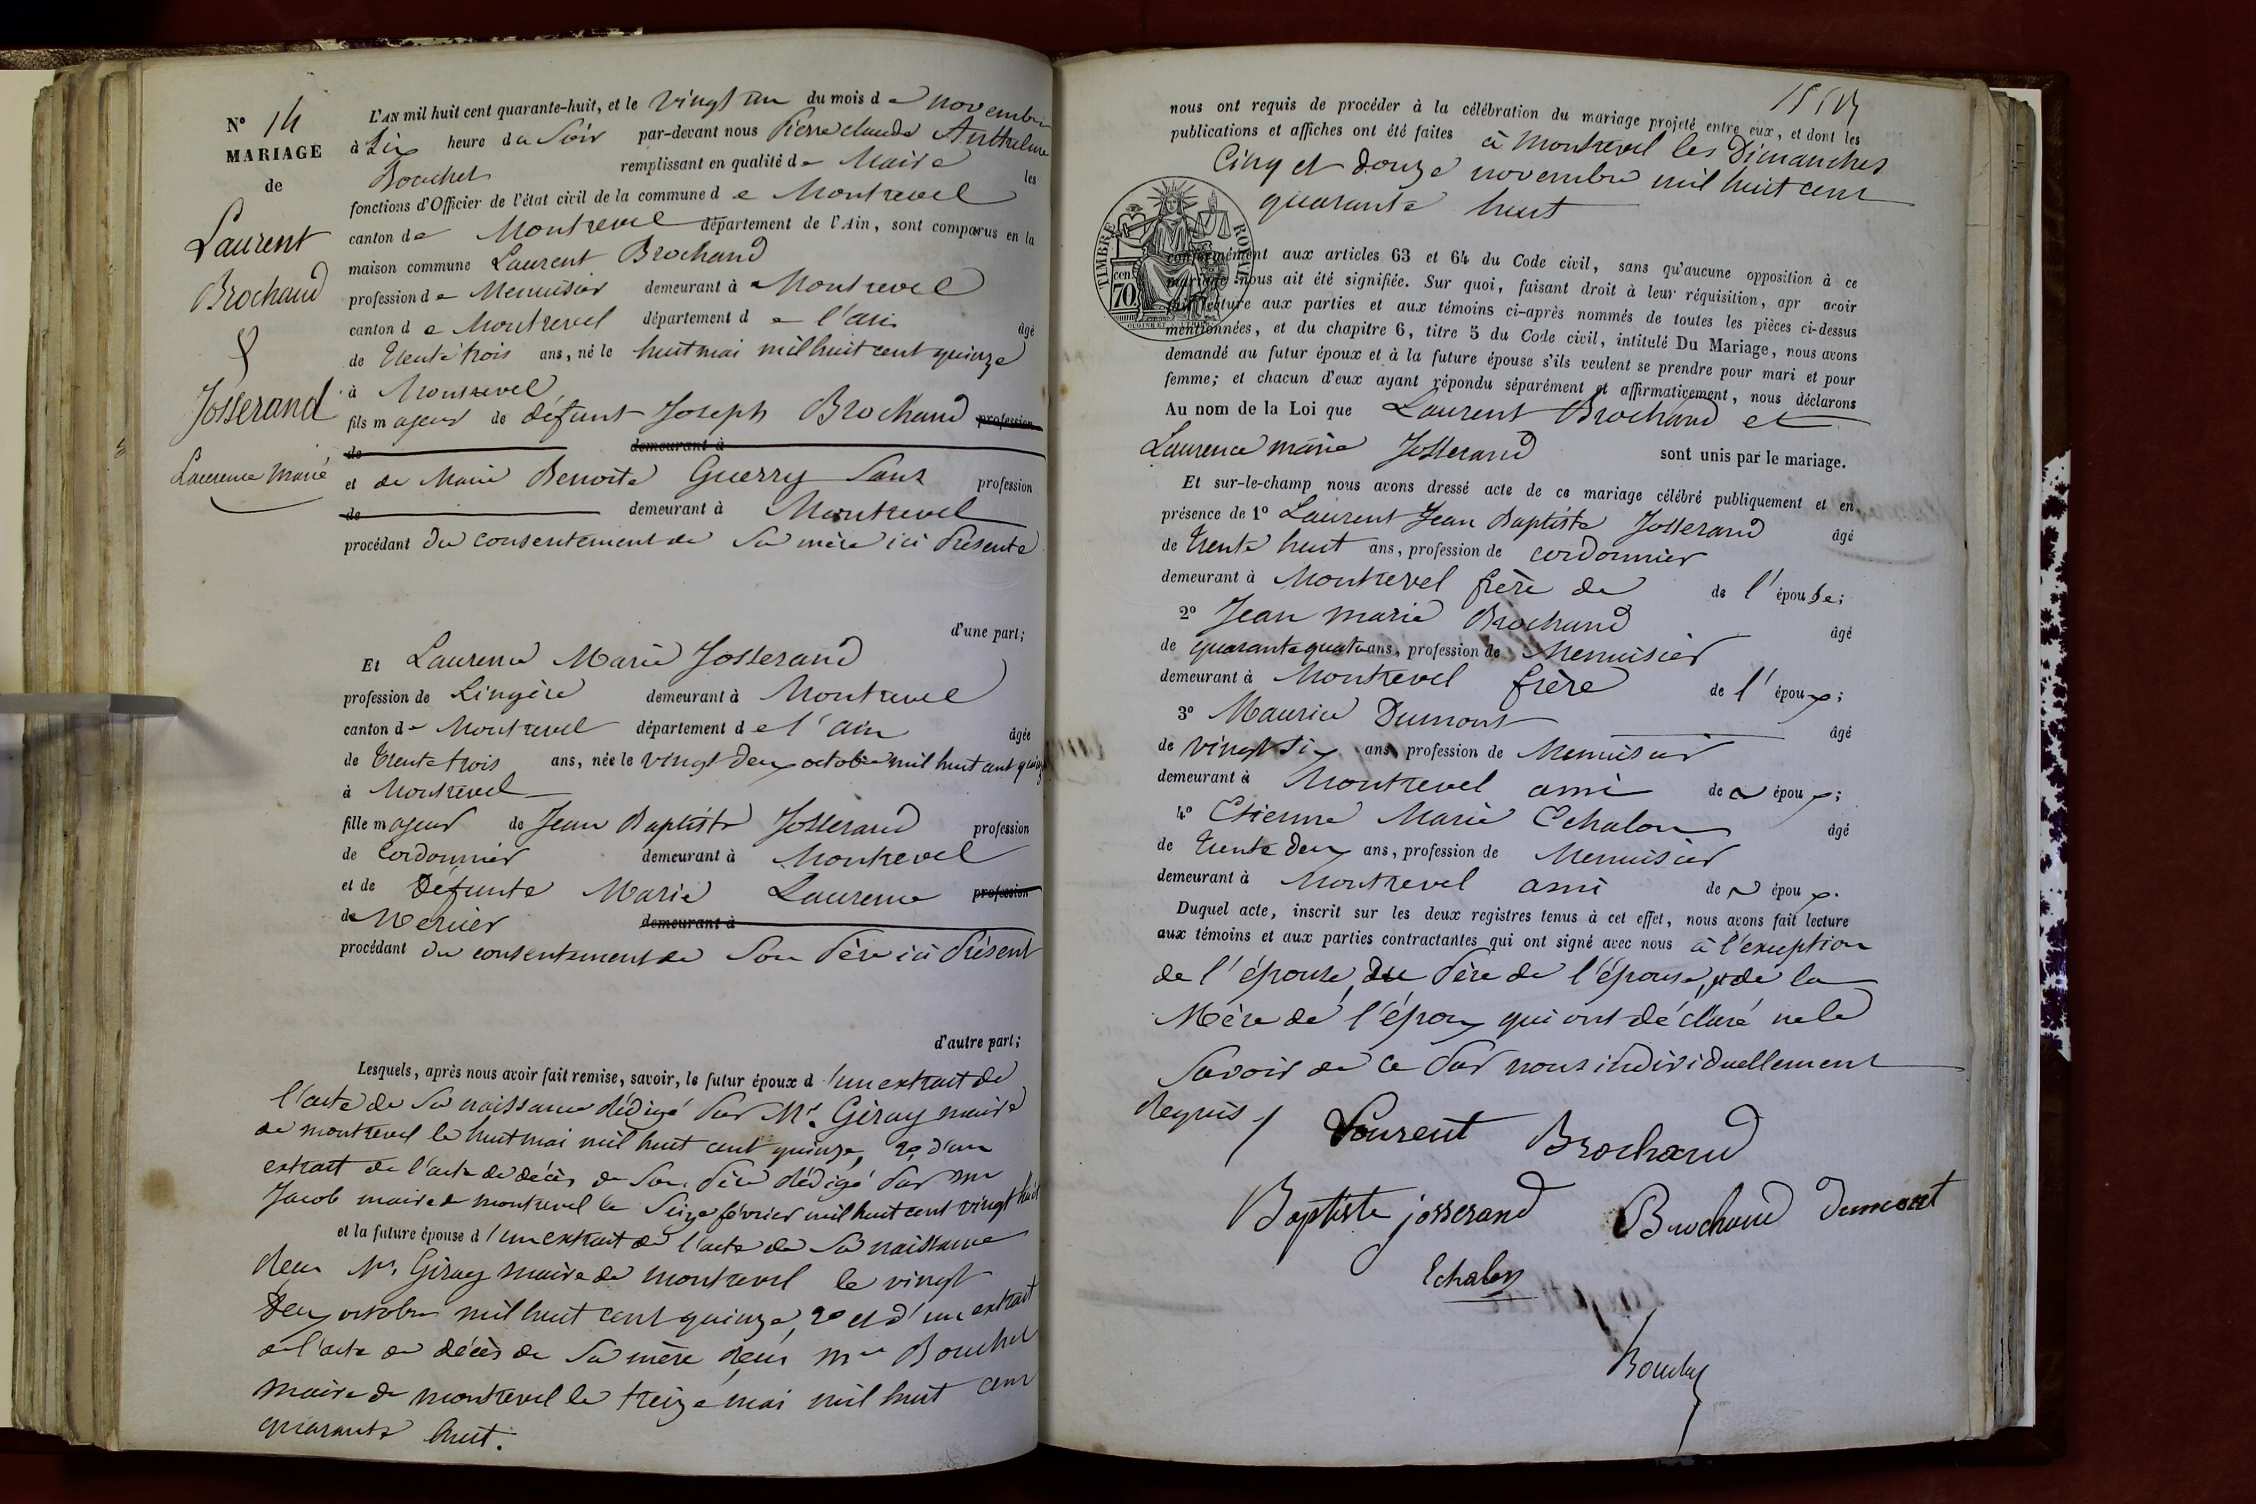 N° 14
MARIAGE
de
Laurent
Brochand
&
Josserand
Laurence Marie
L'AN mil huit cent quarante-huit, et le vingt un du mois de novembre
à Six heure du Soir par-devant nous Pierre Claude Anthelme
Bouchet remplissant en qualité de Maire les
fonctions d'Officier de l'état civil de la commune de Montrevel
canton de Montrevel département de l'Ain, sont comparus en la
maison commune Laurent Brochand
profession de Menuisier demeurant à Montrevel
canton de Montrevel département de l'ain âgé
de trente trois ans, né le huit mai mil huit cent quinze
à Montrevel
fils majeur de défunt Joseph Brochand profession
de demeurant à
et de Marie Benoite Guerry Sans profession
de demeurant à Montrevel
procédant du consentement de Sa mère ici Présente
d'une part;
Et Laurence Marie Josserand
profession de Lingère demeurant à Montrevel
canton de Montrevel département de l'ain âgée
de trente trois ans, née le vingt deux octobre mil huit cent quinze
à Montrevel
fille majeur de Jean Baptiste Josserand profession
de Cordonnier demeurant à Montrevel
et de Défunte Marie Laurence profession
de Mercier demeurant à
procédant du consentement de Son Père ici Présent
d'autre part;
Lesquels, après nous avoir fait remise, savoir, le futur époux d'un extrait de
l'acte de Sa naissance rédigé Par Mr. Giray maire
de montrevel le huit mai mil huit cent quinze, 2° d'un
extrait de l'acte de décès de Son Père rédigé Par mr
Jacob maire de montrevel le Seize février mil huit cent vingt huit
et la future épouse d'un extrait de l'acte de Sa naissance
Reçu Mr. Giray maire de montrevel le vingt
deux octobre mil huit cent quinze, 2° et d'un extrait
de l'acte de décès de Sa mère Reçu mr Bouchet
maire de montrevel le treize mai mil huit cent
quarante huit.
nous ont requis de procéder à la célébration du mariage projeté entre eux, et dont les
publications et affiches ont été faites à Montrevel les Dimanches
Cinq et douze novembre mil huit cent
quarante huit
TIMBRE ROYAL
70 cent
conformément aux articles 63 et 64 du Code civil, sans qu'aucune opposition à ce
mariage nous ait été signifiée. Sur quoi, faisant droit à leur réquisition, apr avoir
fait lecture aux parties et aux témoins ci-après nommés de toutes les pièces ci-dessus
mentionnées, et du chapitre 6, titre 5 du Code civil, intitulé Du Mariage, nous avons
demandé au futur époux et à la future épouse s'ils veulent se prendre pour mari et pour
femme; et chacun d'eux ayant répondu séparément et affirmativement, nous déclarons
Au nom de la Loi que Laurent Brochand et
Laurence marie Josserand sont unis par le mariage.
Et sur-le-champ nous avons dressé acte de ce mariage célébré publiquement et en
présence de 1° Laurent Jean Baptiste Josserand âgé
de trente huit ans, profession de cordonnier
demeurant à Montrevel frère de de l'épouse;
2° Jean marie Brochand âgé
de quarante quatre ans, profession de Menuisier
demeurant à Montrevel frère de l'époux;
3° Maurice Dumont âgé
de vingt Six ans, profession de Menuisier
demeurant à Montrevel ami de époux;
4° Etienne Marie Echalon âgé
de trente deux ans, profession de Menuisier
demeurant à Montrevel ami de époux.
Duquel acte, inscrit sur les deux registres tenus à cet effet, nous avons fait lecture
aux témoins et aux parties contractantes qui ont signé avec nous à l'exception
de l'épouse, du Père de l'épouse, et de la
Mère de l'époux qui ont déclaré ne le
Savoir de ce Par nous individuellement
Requis /
Lourent Brochand
Baptiste josserand Brochand Dumont
Echalon
Bouchet